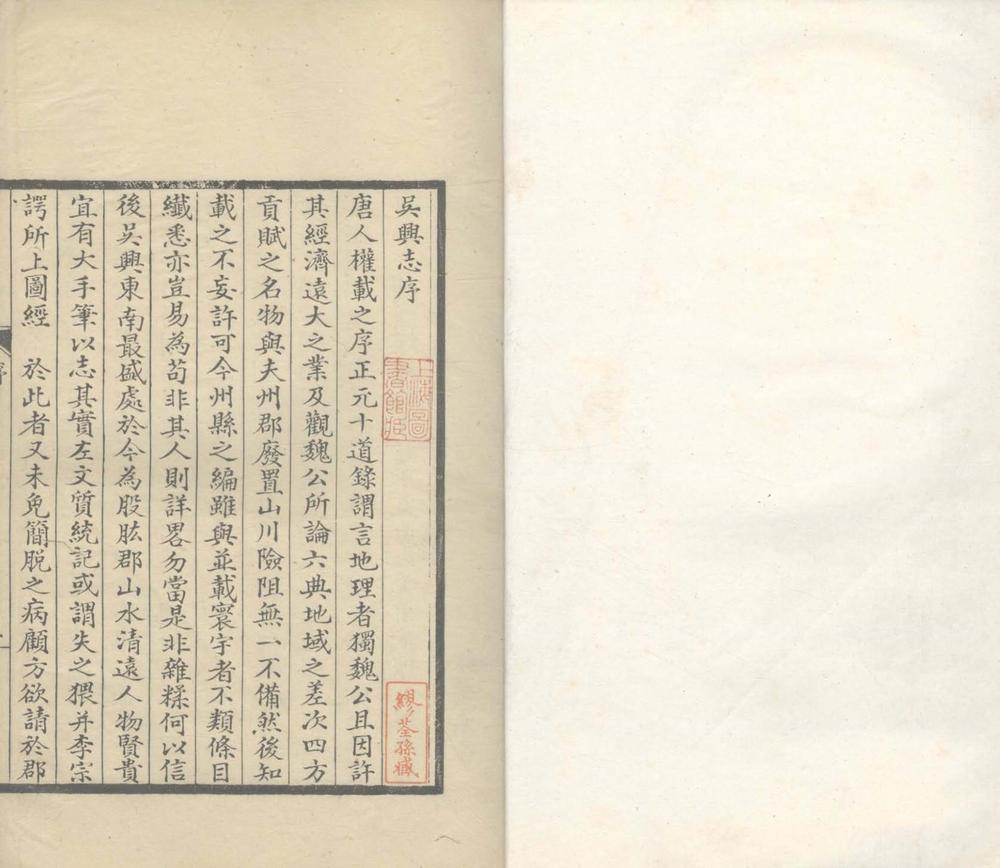 吳興志序
上海圖
書館藏
繆荃孫藏
唐人權載之序正元十道錄謂言地理者獨魏公且因許
其經濟遠大之業及觀魏公所論六典地域之差次四方
貢賦之名物與夫州郡廢置山川險阻無一不備然後知
載之不妄許可今州縣之編雖與並載寰宇者不類條目
纎悉亦豈易為苟非其人則詳畧勿當是非雜糅何以信
後吳興東南最盛處於今為股肱郡山水清遠人物賢貴
宜有大手筆以志其實左文質統記或謂失之猥并李宗
諤所上圖經 於此者又未免簡脱之病顧方欲請於郡
序